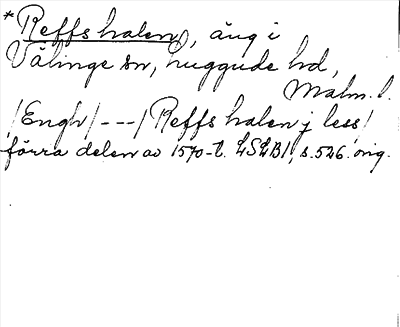 * Reffs halen, äng i
Välinge sn, Luggude hd,
Malm. l.
/Engh/ --- / Reffs halen j less/
förra delen av 1570-t. LSLB1, s. 526. orig.